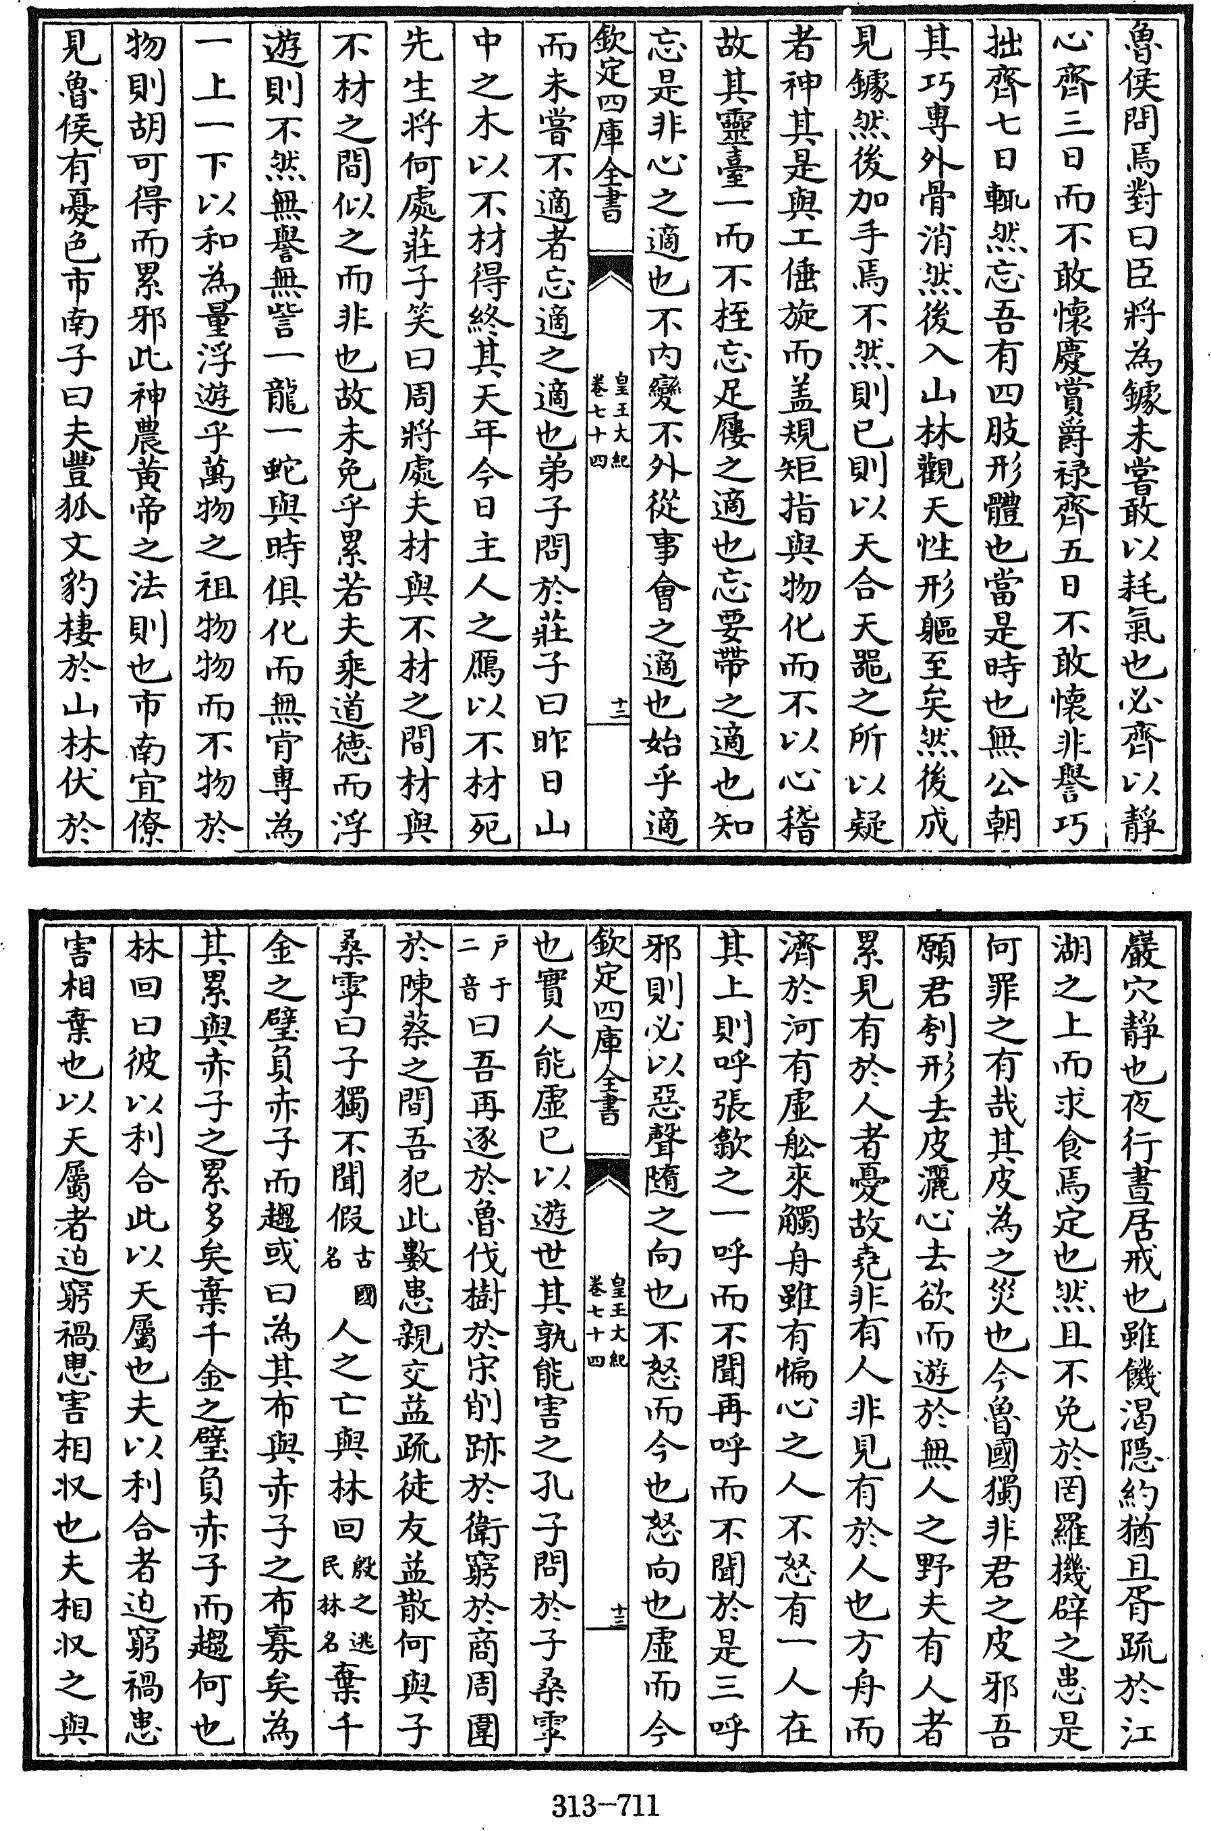 魯侯問焉對曰臣將為鐻未嘗敢以耗氣也必齊以靜
心齊三日而不敢懷慶賞爵祿齊五日不敢懷非譽巧
拙齊七日輒然忘吾有四肢形體也當是時也無公朝
其巧專外骨消然後入山林觀天性形軀至矣然後成
見鐻然後加手焉不然則已則以天合天器之所以疑
者神其是與工倕旋而盖規矩指與物化而不以心稽
故其靈臺一而不桎忘足屨之適也忘要帶之適也知
忘是非心之適也不内變不外從事會之適也始乎適
欽定四庫全書
皇王大紀
卷七十四
十二
而未嘗不適者忘適之適也弟子問於莊子曰昨日山
中之木以不材得終其天年今日主人之鴈以不材死
先生將何處莊子笑曰周將處夫材與不材之間材與
不材之間似之而非也故未免乎累若夫乘道德而浮
遊則不然無譽無訾一龍一蛇與時俱化而無肯專為
一上一下以和為量浮遊乎萬物之祖物物而不物於
物則胡可得而累邪此神農黄帝之法則也市南宜僚
見魯侯有憂色市南子曰夫豐狐文豹棲於山林伏於
巖穴靜也夜行晝居戒也雖饑渴隱約猶且胥疏於江
湖之上而求食焉定也然且不免於罔羅機辟之患是
何罪之有哉其皮為之災也今魯國獨非君之皮邪吾
願君刳形去皮灑心去欲而遊於無人之野夫有人者
累見有於人者憂故堯非有人非見有於人也方舟而
濟於河有虛舩來觸舟雖有惼心之人不怒有一人在
其上則呼張歙之一呼而不聞再呼而不聞於是三呼
邪則必以惡聲隨之向也不怒而今也怒向也虛而今
欽定四庫全書
皇王大紀
卷七十四
十三
也實人能虛已以遊世其孰能害之孔子問於子桑雽
戶于二音曰吾再逐於魯伐樹於宋削跡於衛窮於商周圍
於陳蔡之間吾犯此數患親交益疏徒友益散何與子
桑雽曰子獨不聞假古國名人之亡與林回殷之逃民林名棄千
金之璧負赤子而趨或曰為其布與赤子之布寡矣為
其累與赤子之累多矣棄千金之璧負赤子而趨何也
林回曰彼以利合此以天屬也夫以利合者迫窮禍患
害相棄也以天屬者迫窮禍患害相収也夫相収之與
313-711